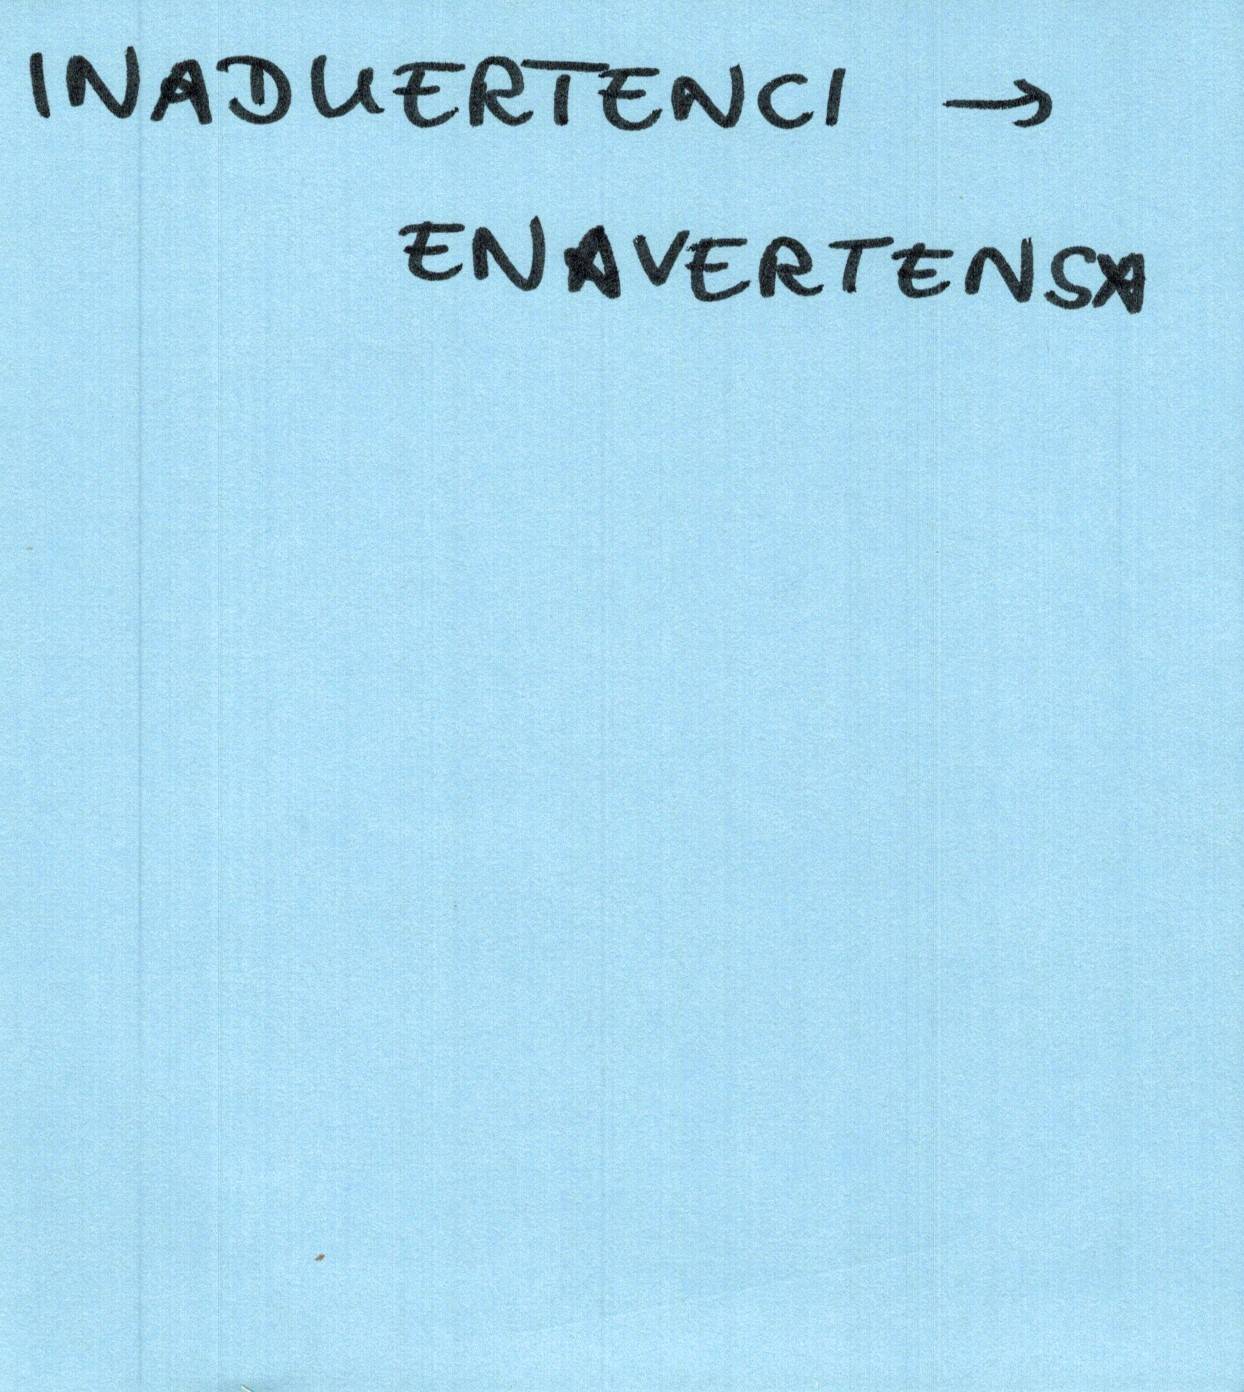 INADUERTENCI →
ENAVERTENSA